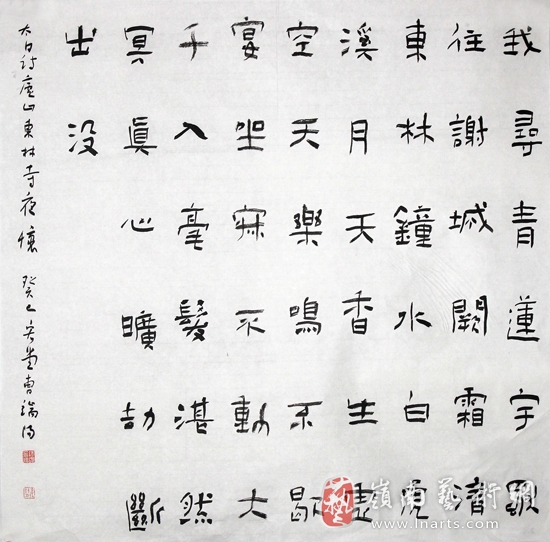 我尋青蓮宇獨
往謝城闕霜清
東林鐘水白虎
溪月天香生虛
空天樂鳴不歇
宴坐寂不動大
千入毫髮湛然
冥眞心曠劫斷
出没
太白詩廬山東林寺夜懷 癸巳 曹
嶺南藝術網
www.lnarts.com